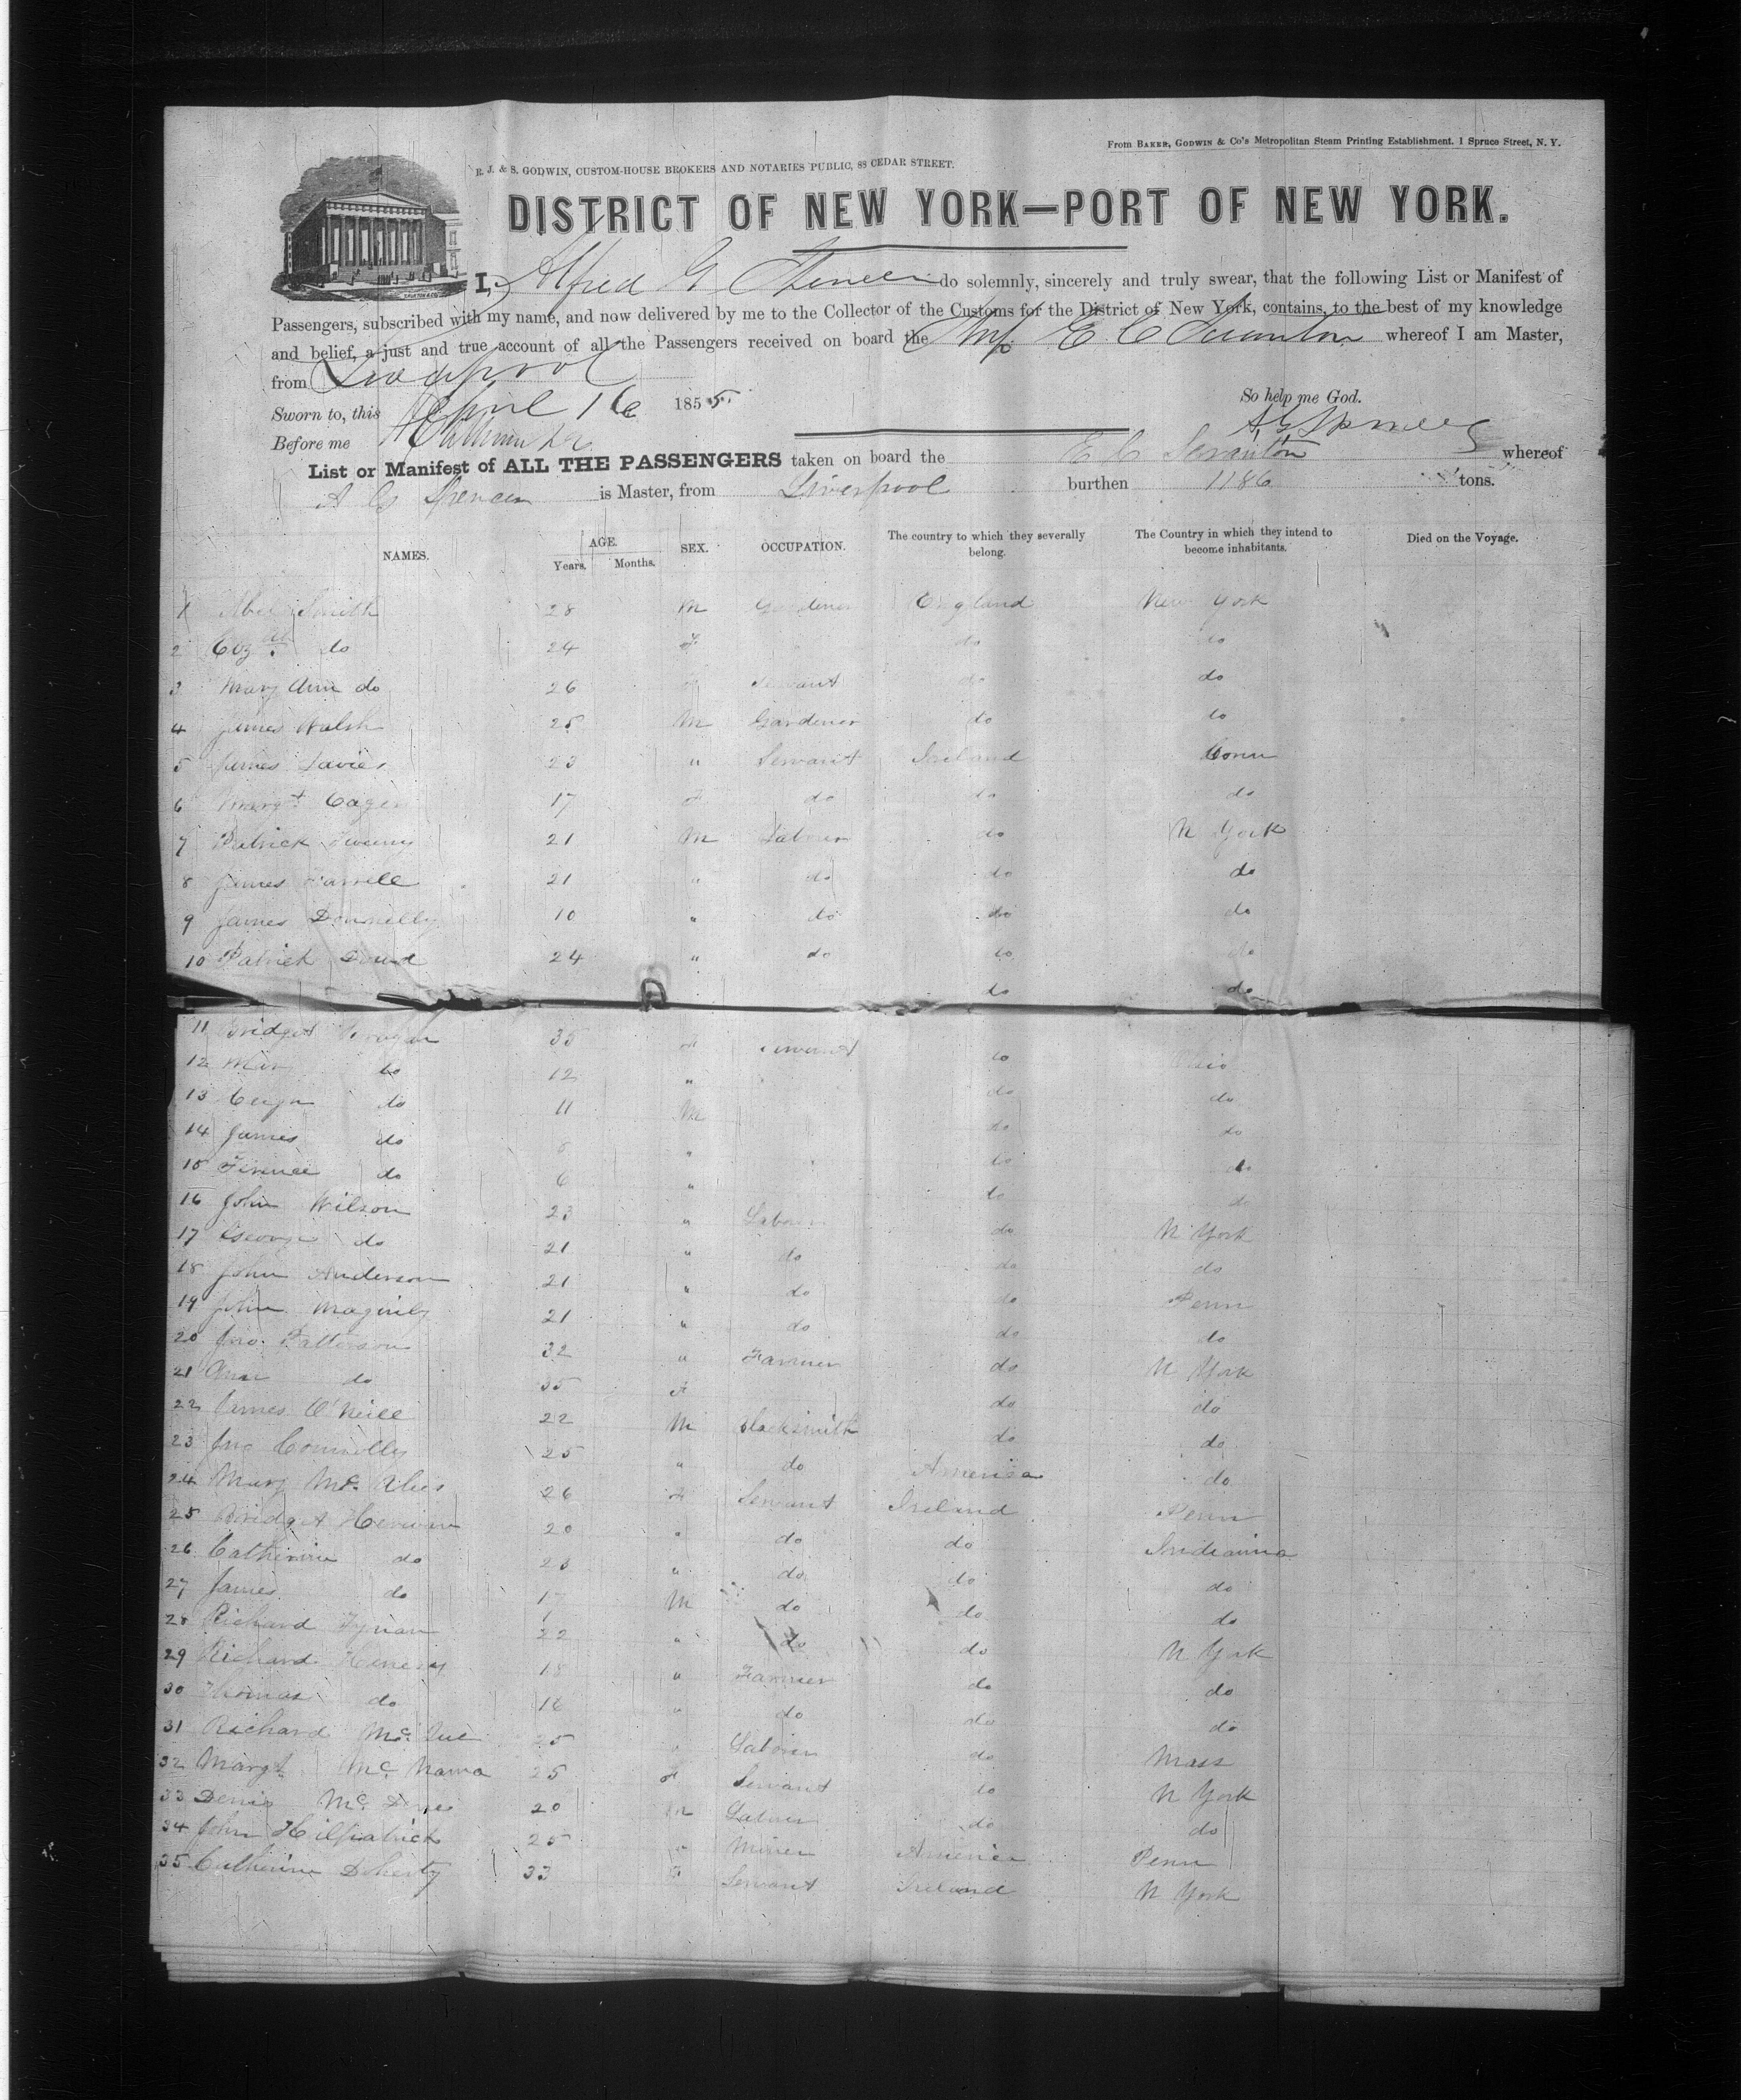 From BAKER, GODWIN & Co's Metropolitan Steam Printing Establishment. 1 Spruce Street, N. Y.
R. J. & S. GODWIN, CUSTOM-HOUSE BROKERS AND NOTARIES PUBLIC, 88 CEDAR STREET.
DISTRICT OF NEW YORK—PORT OF NEW YORK.
I, Alfred G Spencer do solemnly, sincerely and truly swear, that the following List or Manifest of
Passengers, subscribed with my name, and now delivered by me to the Collector of the Customs for the District of New York, contains, to the best of my knowledge
and belief, a just and true account of all the Passengers received on board the Ship E C Scranton whereof I am Master,
from Liverpool
Sworn to, this April 16 1855. So help me God.
Before me A G Spencer
List or Manifest of ALL THE PASSENGERS taken on board the E C Scranton whereof
A G Spencer is Master, from Liverpool burthen 1186 tons.
NAMES. AGE. Years. Months. SEX. OCCUPATION. The country to which they severally belong. The Country in which they intend to become inhabitants. Died on the Voyage.
1 Smith 28 M Gardener England New York
2 do 24 F do do
3 Mary Ann do 26 F Servant do do
4 James Walsh 25 M Gardener do do
5 James 23 " Servant Ireland Conn
6 Margt 17 F do do do
7 Patrick 21 M Labourer do N York
8 James Farrell 21 " do do do
9 James Donnelly 10 " do do do
10 Patrick Dowd 24 " do do do
do do
11 Bridget 35 F Servant do Ohio
12 do 12 " do do
13 do 11 M do do
14 James do 8 " do do
15 Terence do 6 " do do
16 John Wilson 23 " Labourer do N York
17 George do 21 " do do do
18 John Anderson 21 " do do Penn
19 John 21 " do do do
20 Jno. Patterson 32 " Farmer do N York
21 Ann do 35 F do do
22 James O'Neill 22 M Blacksmith do do
23 Jno Connolly 25 " do America do
24 Mary 26 F Servant Ireland Penn
25 Bridget 20 " do do Indianna
26 Catherine do 23 " do do do
27 James do 17 M do do do
28 Richard Tynan 22 " do do N York
29 Richard 18 " Farmer do do
30 Thomas do 16 " do do do
31 Richard 25 " Labourer do Mass
32 Margt McNama 25 F Servant do N York
33 Denis 20 M Labourer do do
34 John Kilpatrick 25 " Miner America Penn
35 Catherine Doherty 33 F Servant Ireland N York